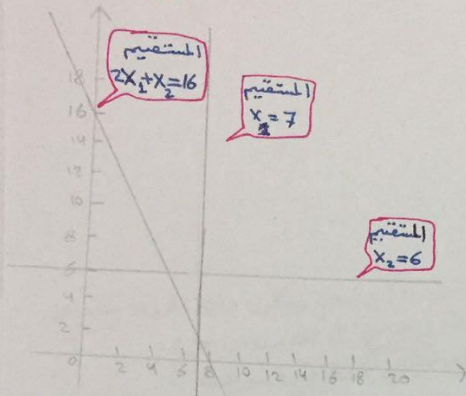 المستقيم
2x₁+x₂=16
المستقيم
x₁=7
المستقيم
x₂=6
18
16
14
12
10
8
6
4
2
0
2 4 6 8 10 12 14 16 18 20